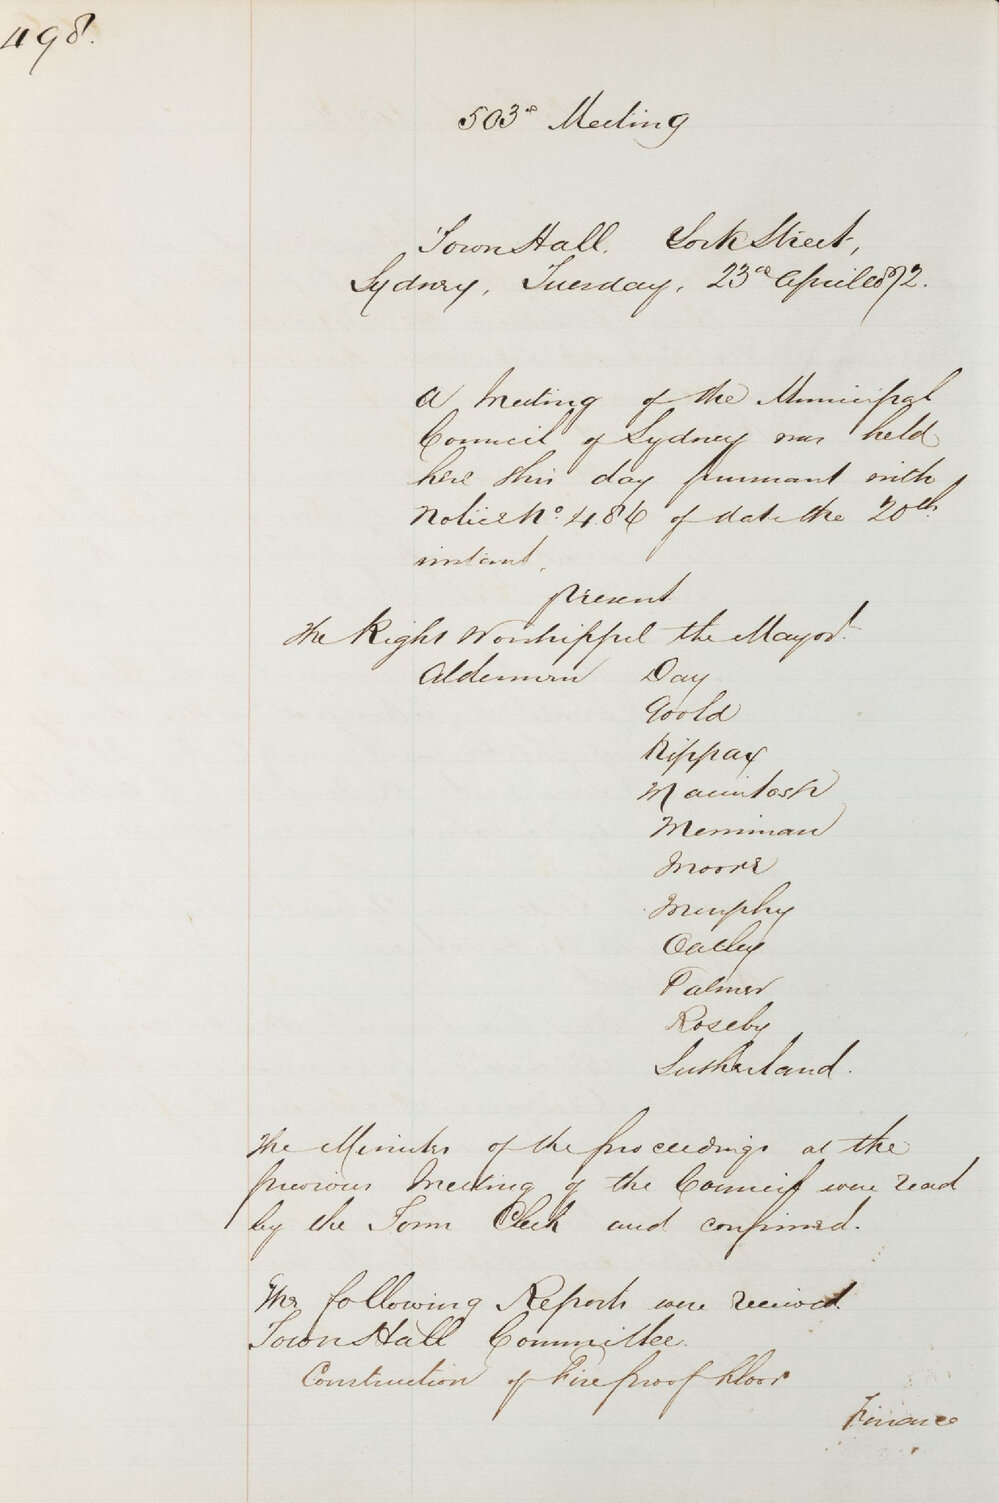 498.
503d Meeting
Town Hall. York Street,
Sydney, Tuesday, 23rd April 1872.
A Meeting of the Municipal
Council of Sydney was held
here this day pursuant with
Notice No. 486 of date the 20th
instant.
present
The Right Worshipful the Mayor.
Aldermen Day
Goold
Kippax
Macintosh
Merriman
Moore
Murphy
Oatley
Palmer
Roseby
Sutherland.
The Minutes of the proceedings at the
previous Meeting of the Council were read
by the Town Clerk and confirmed.
The following Reports were received
Town Hall Committee.
Construction of Fireproof Floor
Finance